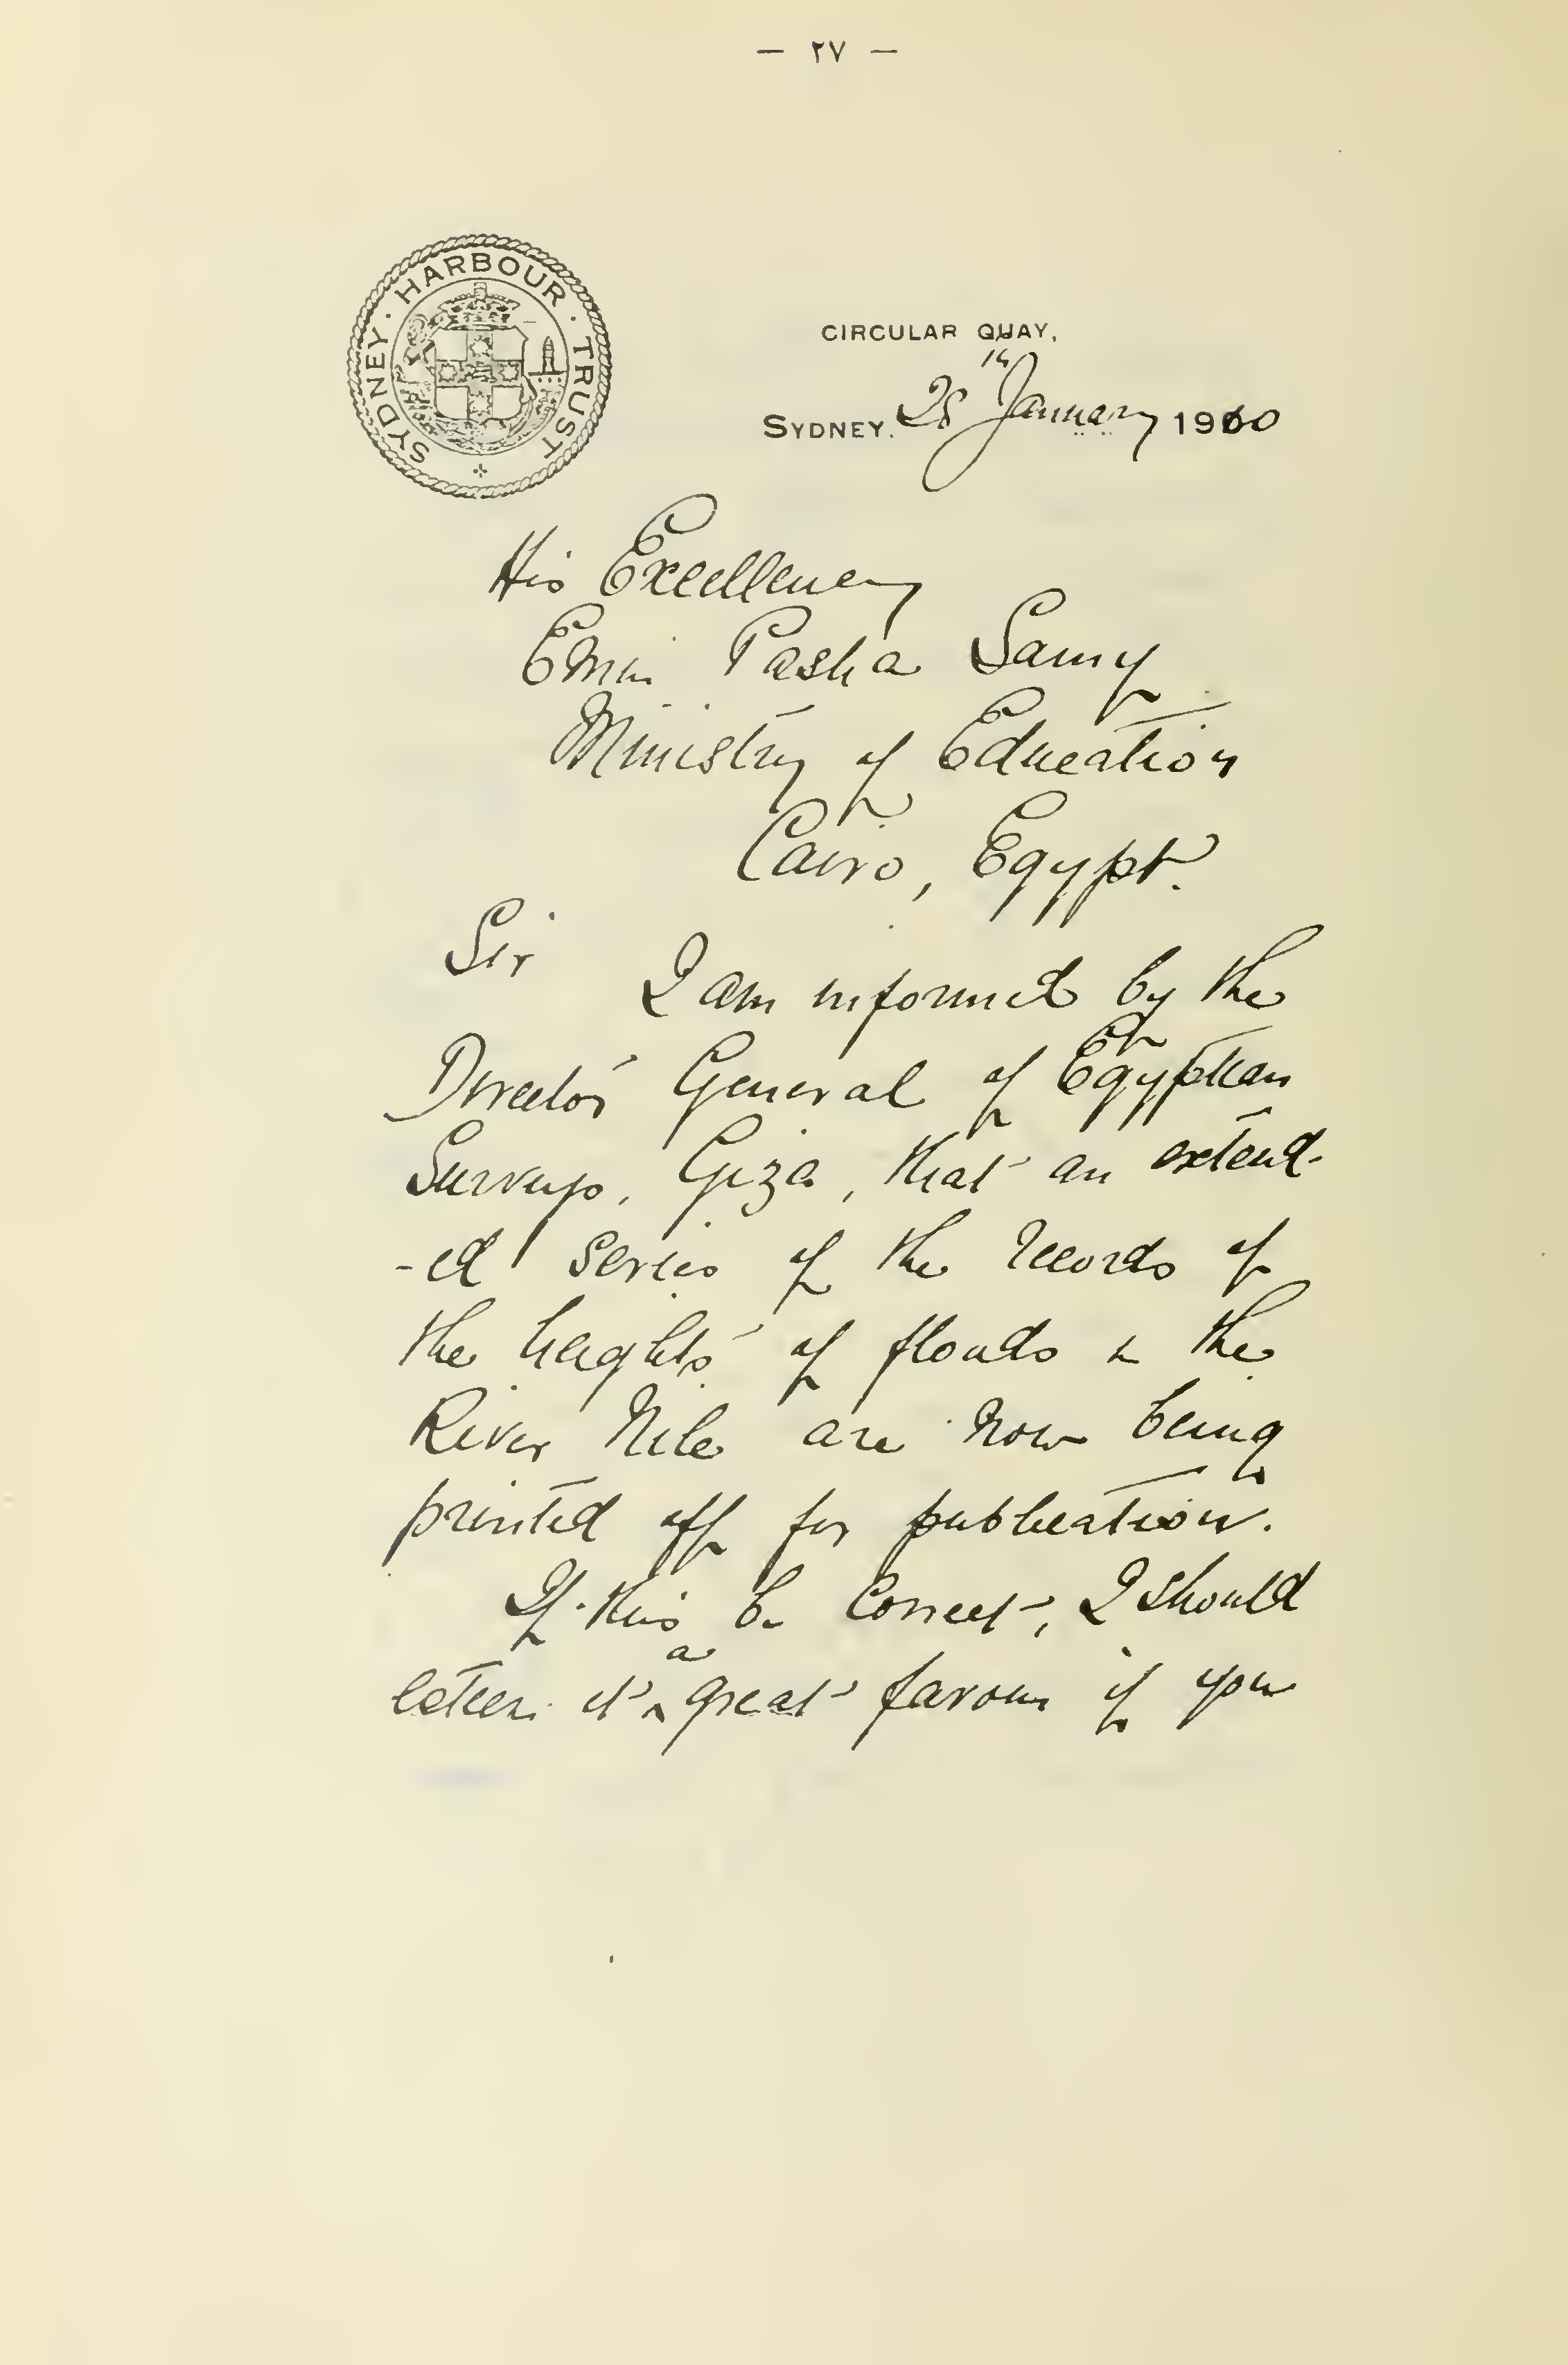 — ٢٧ —
SYDNEY · HARBOUR · TRUST
CIRCULAR QUAY,
SYDNEY. 28th January 1910
His Excellency
Emin Pasha Samy
Ministry of Education
Cairo, Egypt.
Sir I am informed by the
Director General of Egyptian
Surveys, Giza, that an extend-
-ed series of the records of
the heights of floods in the
River Nile are now being
printed off for publication.
If this be correct, I should
esteem it a great favour if you